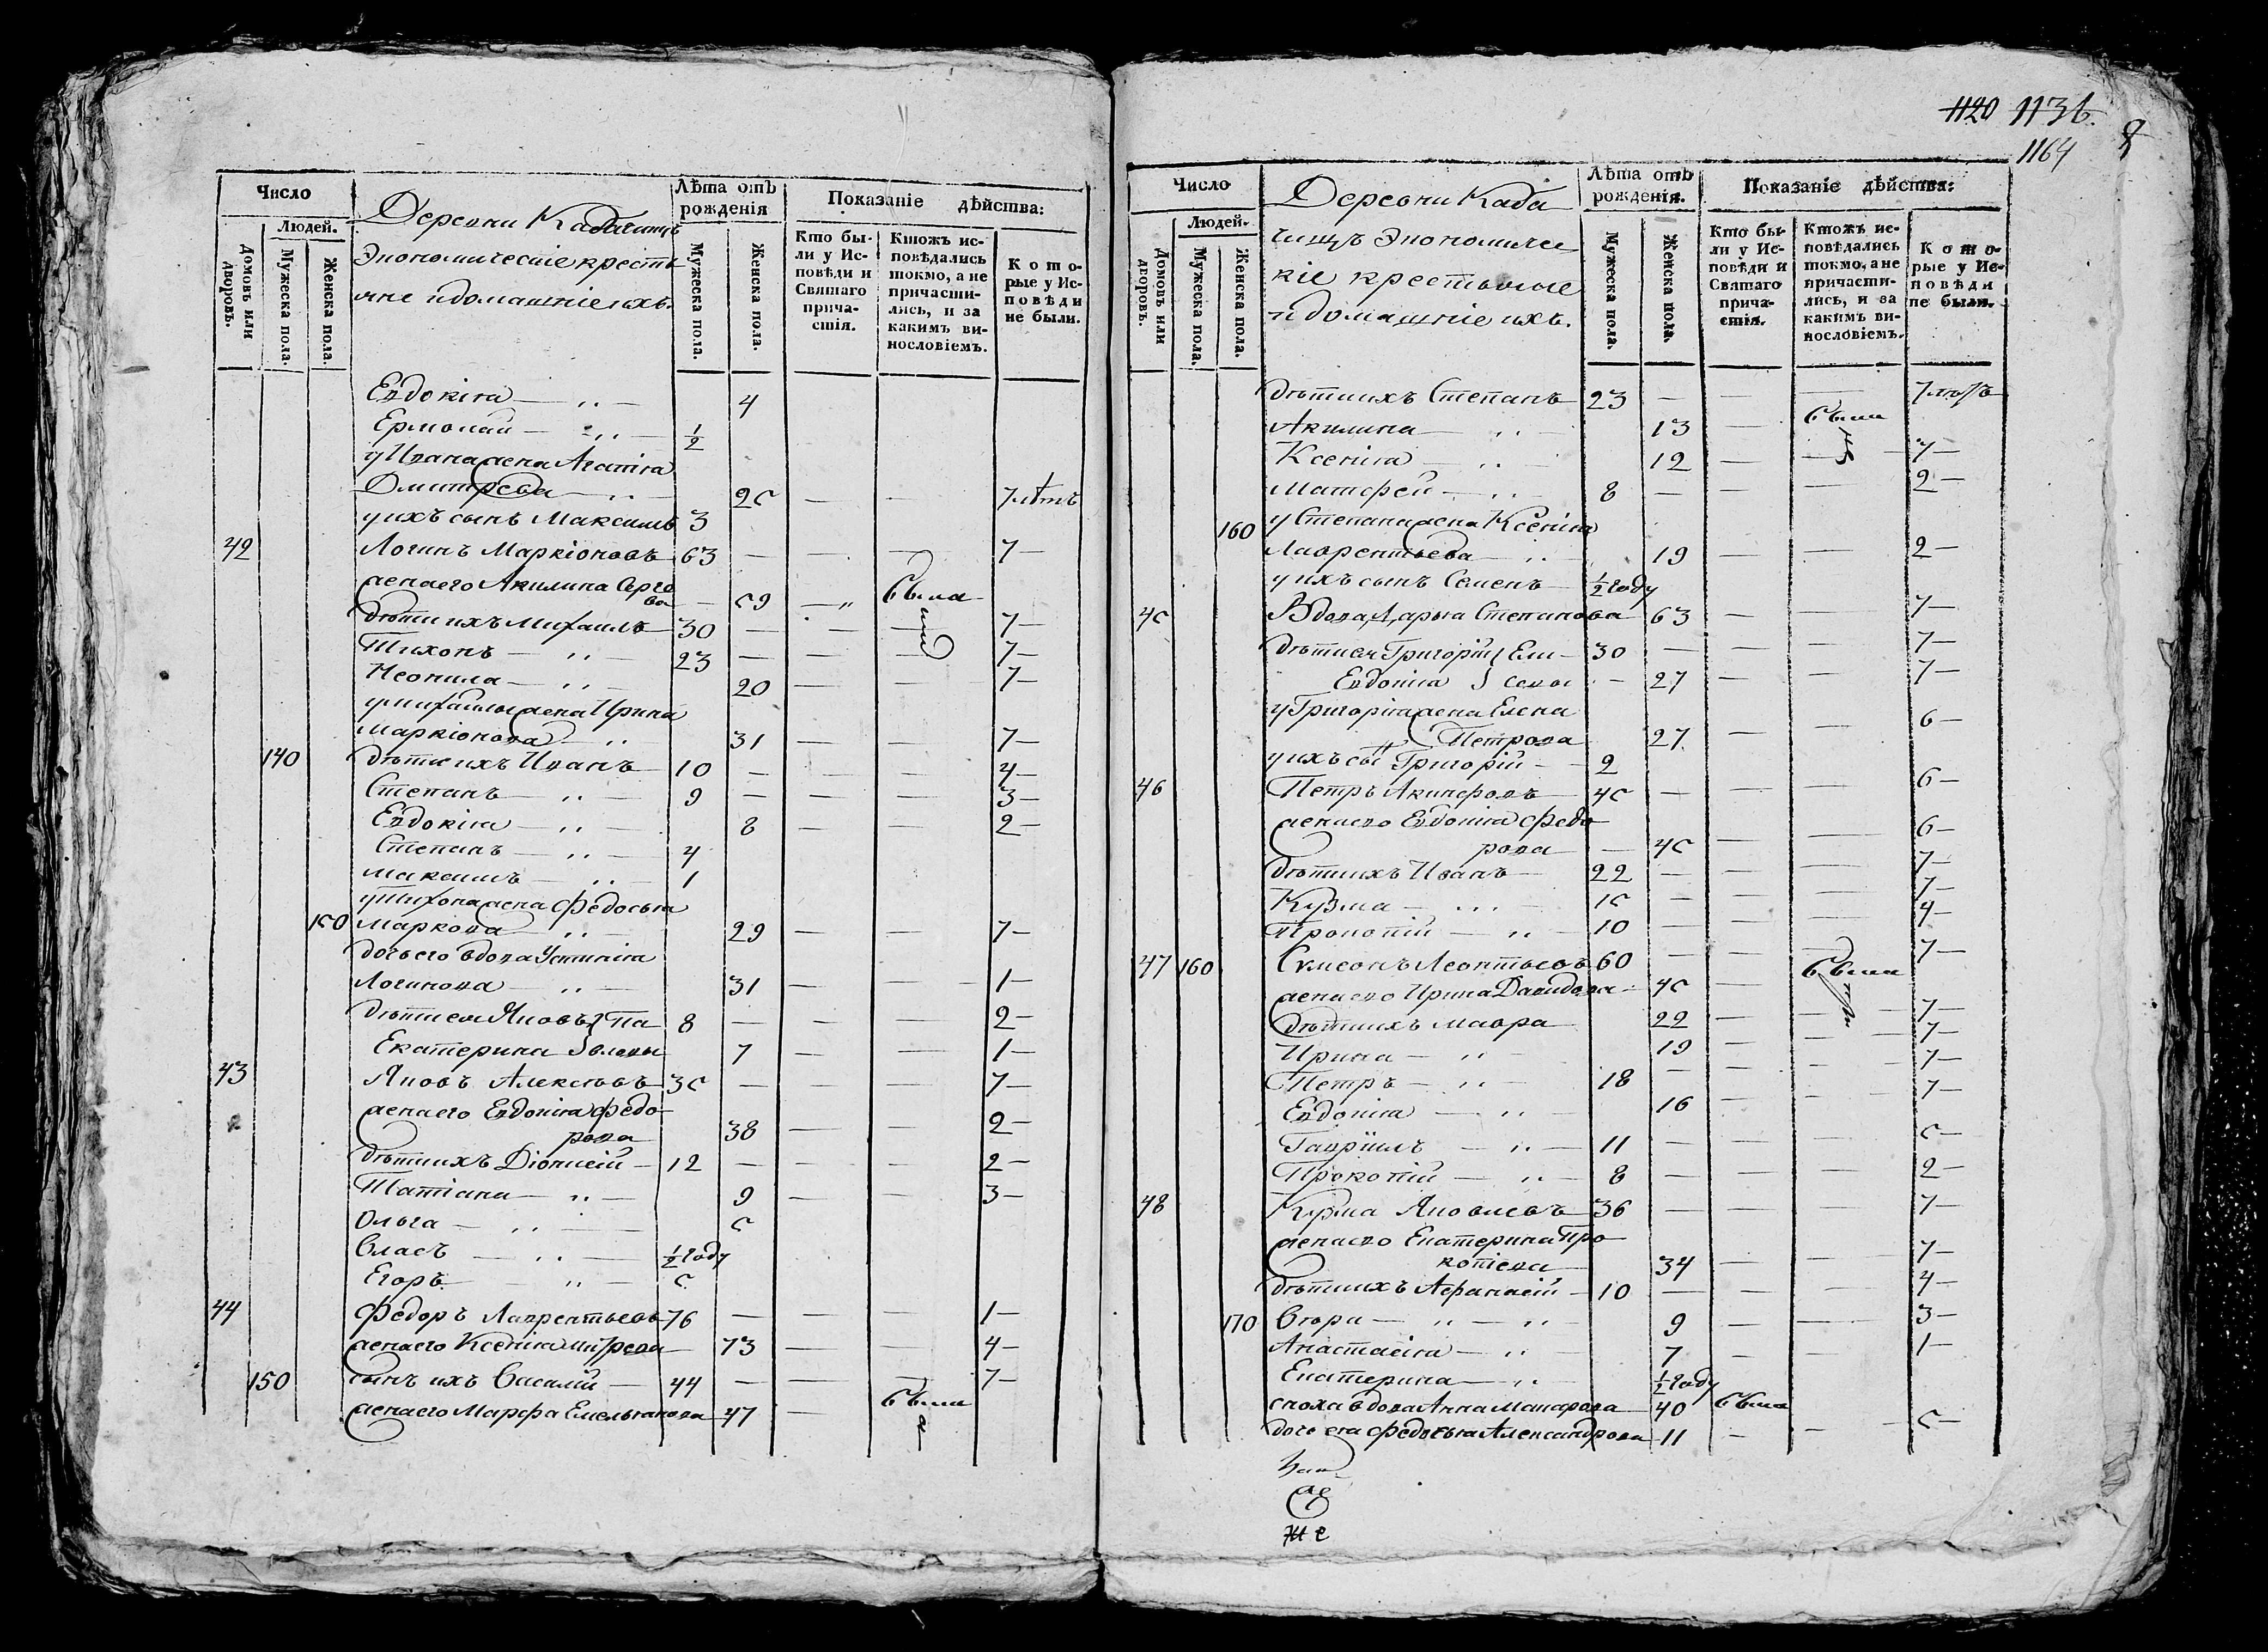 1120 1136.
1164
Число
Людей.
Домовъ или дворовъ.
Мужеска пола.
Женска пола.
Деревни Кабачищъ
Экономические кресть
яне и домашние ихъ.
Лѣта отъ рожденія
Мужеска пола.
Женска пола.
Показаніе дѣйства:
Кто бы-
ли у Ис-
повѣди и
Святаго
прича-
стія.
Ктожъ ис-
повѣдались
токмо, а не
причасти-
лись, и за
какимъ ви-
нословіемъ.
К о т о-
рые у Ис-
п о в ѣ д и
не были.
Евдокіа 4
Ермолай ½
у Ивана жена Агапіа
Дмитрева 25 — — 7 лѣтъ
у ихъ сынъ Максимъ 3
42 Логинъ Маркіоновъ 63 — — — 7
жена его Акилина Серге
ва — 59 — была
дѣти ихъ Михаилъ 30 — — — 7 —
Тихонъ 23 — — — 7 —
Неонила 20 — — 7 —
у Михайлы жена Ирина
Маркіонова 31 — — 7 —
140 дѣти ихъ Иванъ 10 — — — 4 —
Степанъ 9 — — — 3 —
Евдокіа 8 — — 2 —
Степанъ 4
Максимъ 1
у Тихона жена Федосья
150 Маркова 29 — — 7 —
дочь его вдова Устиніа
Логинова 31 — — 1 —
дѣти ея Яковъ } Па 8 — — — 2 —
Екатерина } вловы 7 — — 1 —
43 Яковъ Алексѣевъ 35 — — — 7 —
жена его Евдокіа Федо-
рова 38 — — 2 —
дѣти ихъ Діонисій 12 — — — 2 —
Татіана 9 — — 3 —
Ольга 5
Власъ ½ году
Егоръ 5
44 Федоръ Лаврентьевъ 76 — — — 1 —
жена его Ксеніа 73 — — 4 —
150 сынъ ихъ Василій 44 — — — 7 —
жена его Марфа Емельянова 47 — была
Число
Людей.
Домовъ или дворовъ.
Мужеска пола.
Женска пола.
Деревни Каба
чищъ Экономичес
кіе крестьяне
и домашніе ихъ.
Лѣта отъ рожденія.
Мужеска пола.
Женска пола.
Показаніе дѣйства:
Кто бы-
ли у Ис-
повѣди и
Святаго
прича-
стія.
Ктожъ ис-
повѣдались
токмо, а не
причасти-
лись, и за
какимъ ви-
нословіемъ.
К о т о-
рые у Ис-
п о в ѣ д и
не были.
дѣти ихъ Степанъ 23 — — — 7 лѣтъ
Акилина 13 — была
Ксеніа 12 — — 7 —
Матфей 8 — — — 2 —
160 у Степана жена Ксеніа
Лаврентьева 19 — — 2 —
у ихъ сынъ Семенъ ½ году
45 Вдова Дарья Степанова 63 — — 7 —
дѣти ея Григорій } Ели 30 — — — 7 —
Евдокіа } сеевы 27 — — 7 —
у Григоріа жена Елена
Петрова 27 — — 6 —
у ихъ сы͞ Григорій 2
46 Петръ Акинфовъ 45 — — — 6 —
жена ево Евдокіа Федо
рова — 45 — — 6 —
дѣти ихъ Иванъ 22 — — — 7 —
Кузма 15 — — — 7 —
Прокопій 10 — — — 4 —
47 160 Симеонъ Леонтьевъ 60 — — — 7 —
жена ево Ирина Давидова 45 — была
дѣти ихъ Мавра 22 — — 7 —
Ирина 19 — — 7 —
Петръ 18 — — — 7 —
Евдокіа 16 — — 7 —
Гавріилъ 11 — — — 5 —
Прокопій 8 — — — 2 —
48 Кузма Яковлевъ 36 — — — 7 —
жена ево Екатерина Про
копіева 34 — — 7 —
дѣти ихъ Афанасій 10 — — — 4 —
170 Вера 9 — — 3 —
Анастасіа 7 — — 1 —
Екатерина ½ году
сноха вдова Анна Макарова 40 была
дочь еіа Федосья Александрова 11 — — 5 —